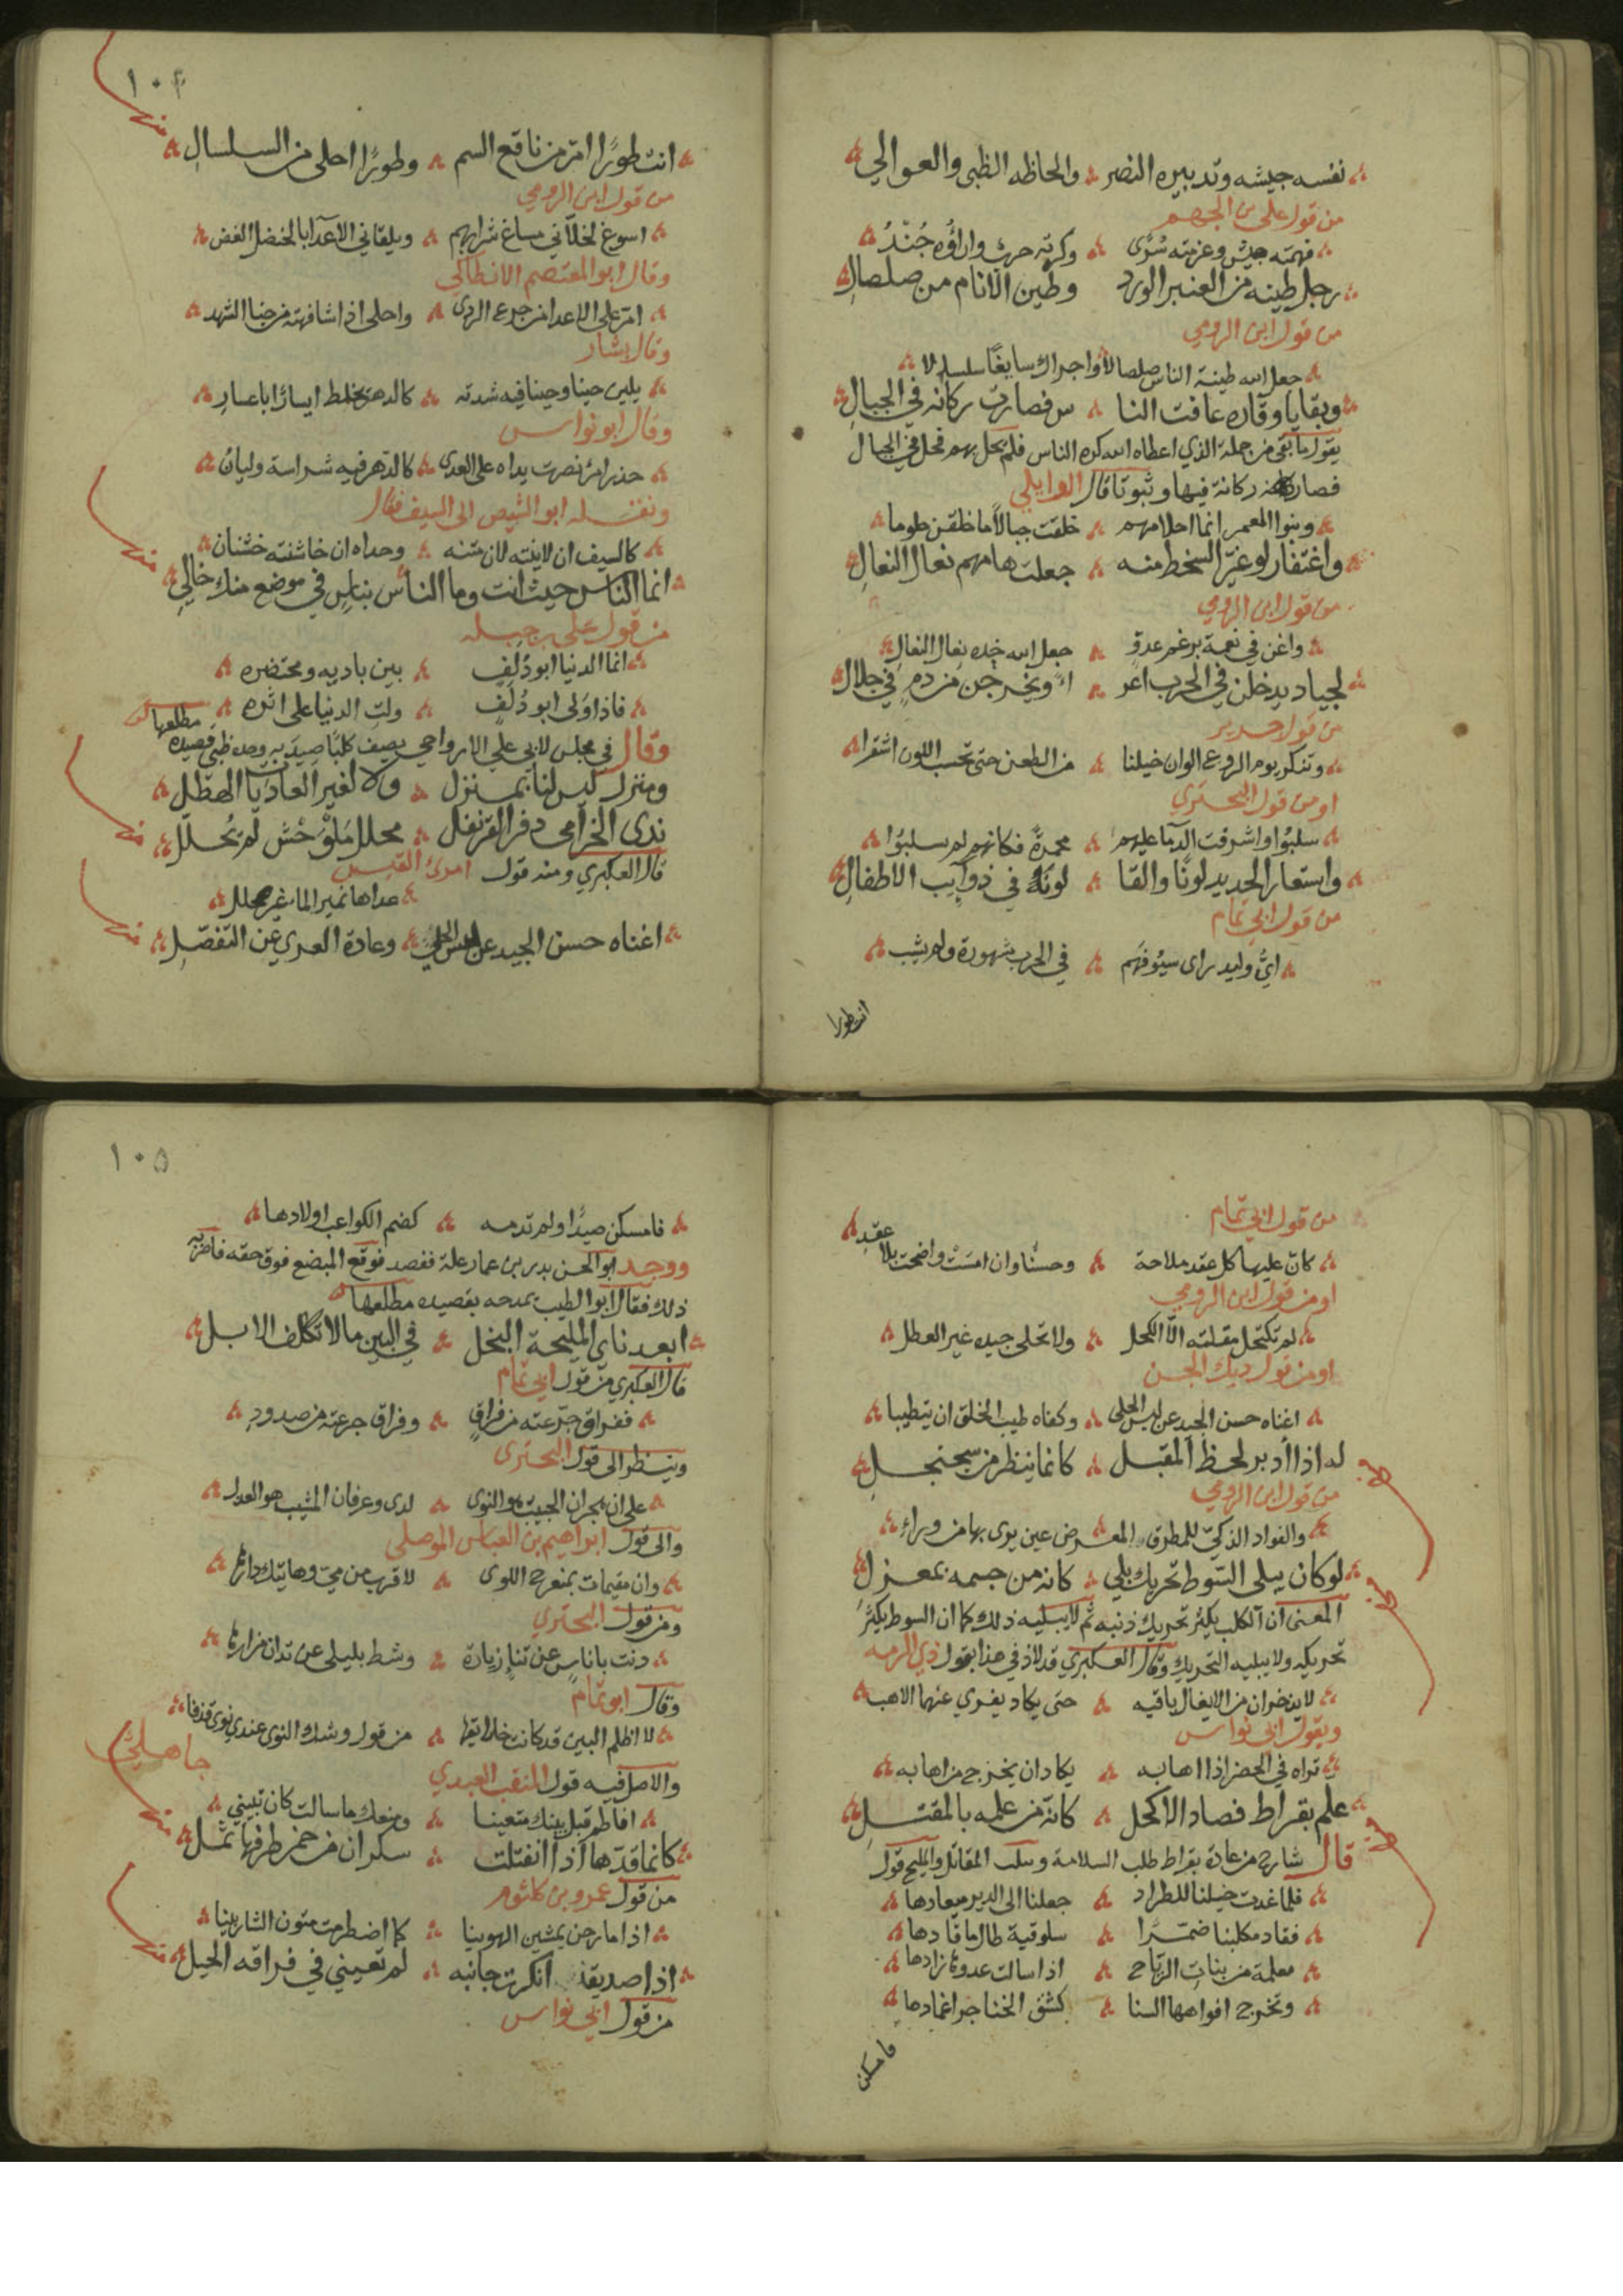 نفسه جيشه وتدبيره النصر والحاظه الظبى والعوالي
من قول علي بن الجهم
فهمته جيش وعزمته سرى وكرته حرب واراؤه جند
رجل طينه من العنبر الورد وطين الانام من صلصال
من قول ابن الرومي
جعل الله طينة الناس صلصالا واجراك سايغا سلسالا
وبقايا وقاره عافت النا س فصارت ركانه في الجبال
يقول ما بقى من جملة الذي اعطاه الله كره الناس فلم يحل بهم فحل في الجبال
فصار ركانة فيها وثبوتا قال الوايلي
وبنوا المعمر انما احلامهم خلقت جبالا ما خلقن حلوما
واغتفار لو غير السخط منه جعلت هامهم نعال النعال
من قول ابن الرومي
واغن في نعمة برغم عدو جعل الله خده نعال النعال
لجياد يدخلن في الحرب اعر اء ويخرجن من دم في جلال
من قول جرير
وتنكر يوم الروع الوان خيلنا من الطعن حتى تحسب اللون اشقرا
او من قول البحتري
سلبوا واشرقت الدما عليهم محمرة فكانهم لم يسلبوا
واستعار الحديد لونا والقا لونه في ذوايب الاطفال
من قول ابي تمام
اي وليد راى سيوفهم في الحرب مشهورة ولم يشب
انت طورا
١٠٤
انت طورا امر من ناقع السم وطورا احلى من السلسال
من قول ابن الرومي
اسوغ لخلاني مساغ شرابهم ويلقاني الاعدا بالخضل الغض
وقال ابو المعتصم الانطاكي
امر على الاعدا من جرع الردى واحلى اذا شافهته من جنا الشهد
وقال بشار
يلين حينا وحينا فيه شدته كالدهر يخلط ايسارا باعسار
وقال ابو نواس
حذر امرئ نصرت يداه على العدى كالدهر فيه شراسة وليان
ونقله ابو الشيص الى السيف فقال
كالسيف ان لاينته لان متنه وحداه ان خاشنته خشنان
انما الناس حيث انت وما الناس بناس في موضع منك خالي
من قول علي بن جبله
انما الدنيا ابو دلف بين باديه ومحتضره
فاذا ولى ابو دلف ولت الدنيا على اثره
وقال في مجلس لابي علي الاوراجي يصف كلبا صيد به وحده ظبي قصيده مطلعها
ومنزل ليس لنا بمنزل ولا لغير الغاديات الهطل
ندى الخزامى دفر القرنفل محلل ملوحش لم يحلل
قال العكبري ومنه قول امرئ القيس
غداها نمير الماء غير محلل
اغناه حسن الجيد عن لبس الحلي وعادة العري عن التفضل
من قول ابي تمام
كان عليها كل عقد ملاحة وحسنا وان امست واضحت بلا عقد
او من قول ابن الرومي
لم تكتحل مقلته الا الكحل ولا تحلى جيده غير العطل
او من قول ديك الجن
اغناه حسن الجيد عن لبس الحلى وكفاه طيب الخلق ان يتطيبا
له اذا ادبر لحظ المقبل كانما ينظر من سجنجل
من قول ابن الرومي
والفواد الذكي للمطرق المعرض عين يرى بها من وراء
لو كان يبلى السوط تحريك بلي كانه من جسمه بمعزل
المعنى ان الكلب يكثر تحريك ذنبه ثم لا يبليه ذلك كما ان السوط يكثر
تحريكه ولا يبليه التحريك وقال العكبري قد لاذ في هذا بقول ذي الرمه
لا يذخران من الايغال باقيه حتى يكاد يفري عنهما الاهب
وبقول ابي نواس
تراه في الحضر اذا اها به يكاد ان يخرج من اهابه
علم بقراط فصاد الاكحل كانه من علمه بالمقتل
قال شارح من عادة بقراط طلب السلامة وسلب المقاتل والمليح قول
فلما غدت خيلنا للطراد جعلنا الى الدير ميعادها
فقاد مكلبنا ضمرا سلوقية طال ما قادها
معلمة من بنات الرياح اذا سالت عدوها زادها
وتخرج افواهها السنا كشق الخناجر اغمادها
فامسكن
١٠٥
فامسكن صيدا ولم تدمه كضم الكواعب اولادها
ووجد ابو الحسن بدر بن عمار علة ففصد فوقع المبضع فوق حقه فاضر به
ذلك فقال ابو الطيب يمدحه بقصيده مطلعها
ابعد ناي المليحة البخل في البين ما لا تكلف الابل
قال العكبري من قول ابي تمام
ففراق جرعته من فراق وفراق جرعته من صدود
وينظر الى قول البحتري
على ان هجران الحبيب هو النوى لدى وعرفان المشيب هو العدل
والى قول ابراهيم بن العباس الموصلي
وان مقيمات بمنعرج اللوى لاقرب من مي وهاتيك دارها
ومن قول البحتري
دنت باناس عن تناء زيارة وشط بليلى عن تدان مزارها
وقال ابو تمام
لا اظلم البين قد كانت خلايقها من قول وشك النوى عندي نوى قذفا
جاهلي
والاصل فيه قول المثقب العبدي
افاطم قبل بينك متعينا ومنعك ما سالت كان تبيني
كانما قدها اذا انفتلت سكران من خمر طرفها ثمل
من قول عمرو بن كلثوم
اذا ما رحن يمشين الهوينا كما اضطرمت متون الشاربينا
اذا صديق انكرت جانبه لم تعيني في فراقه الحيل
من قول ابي نواس